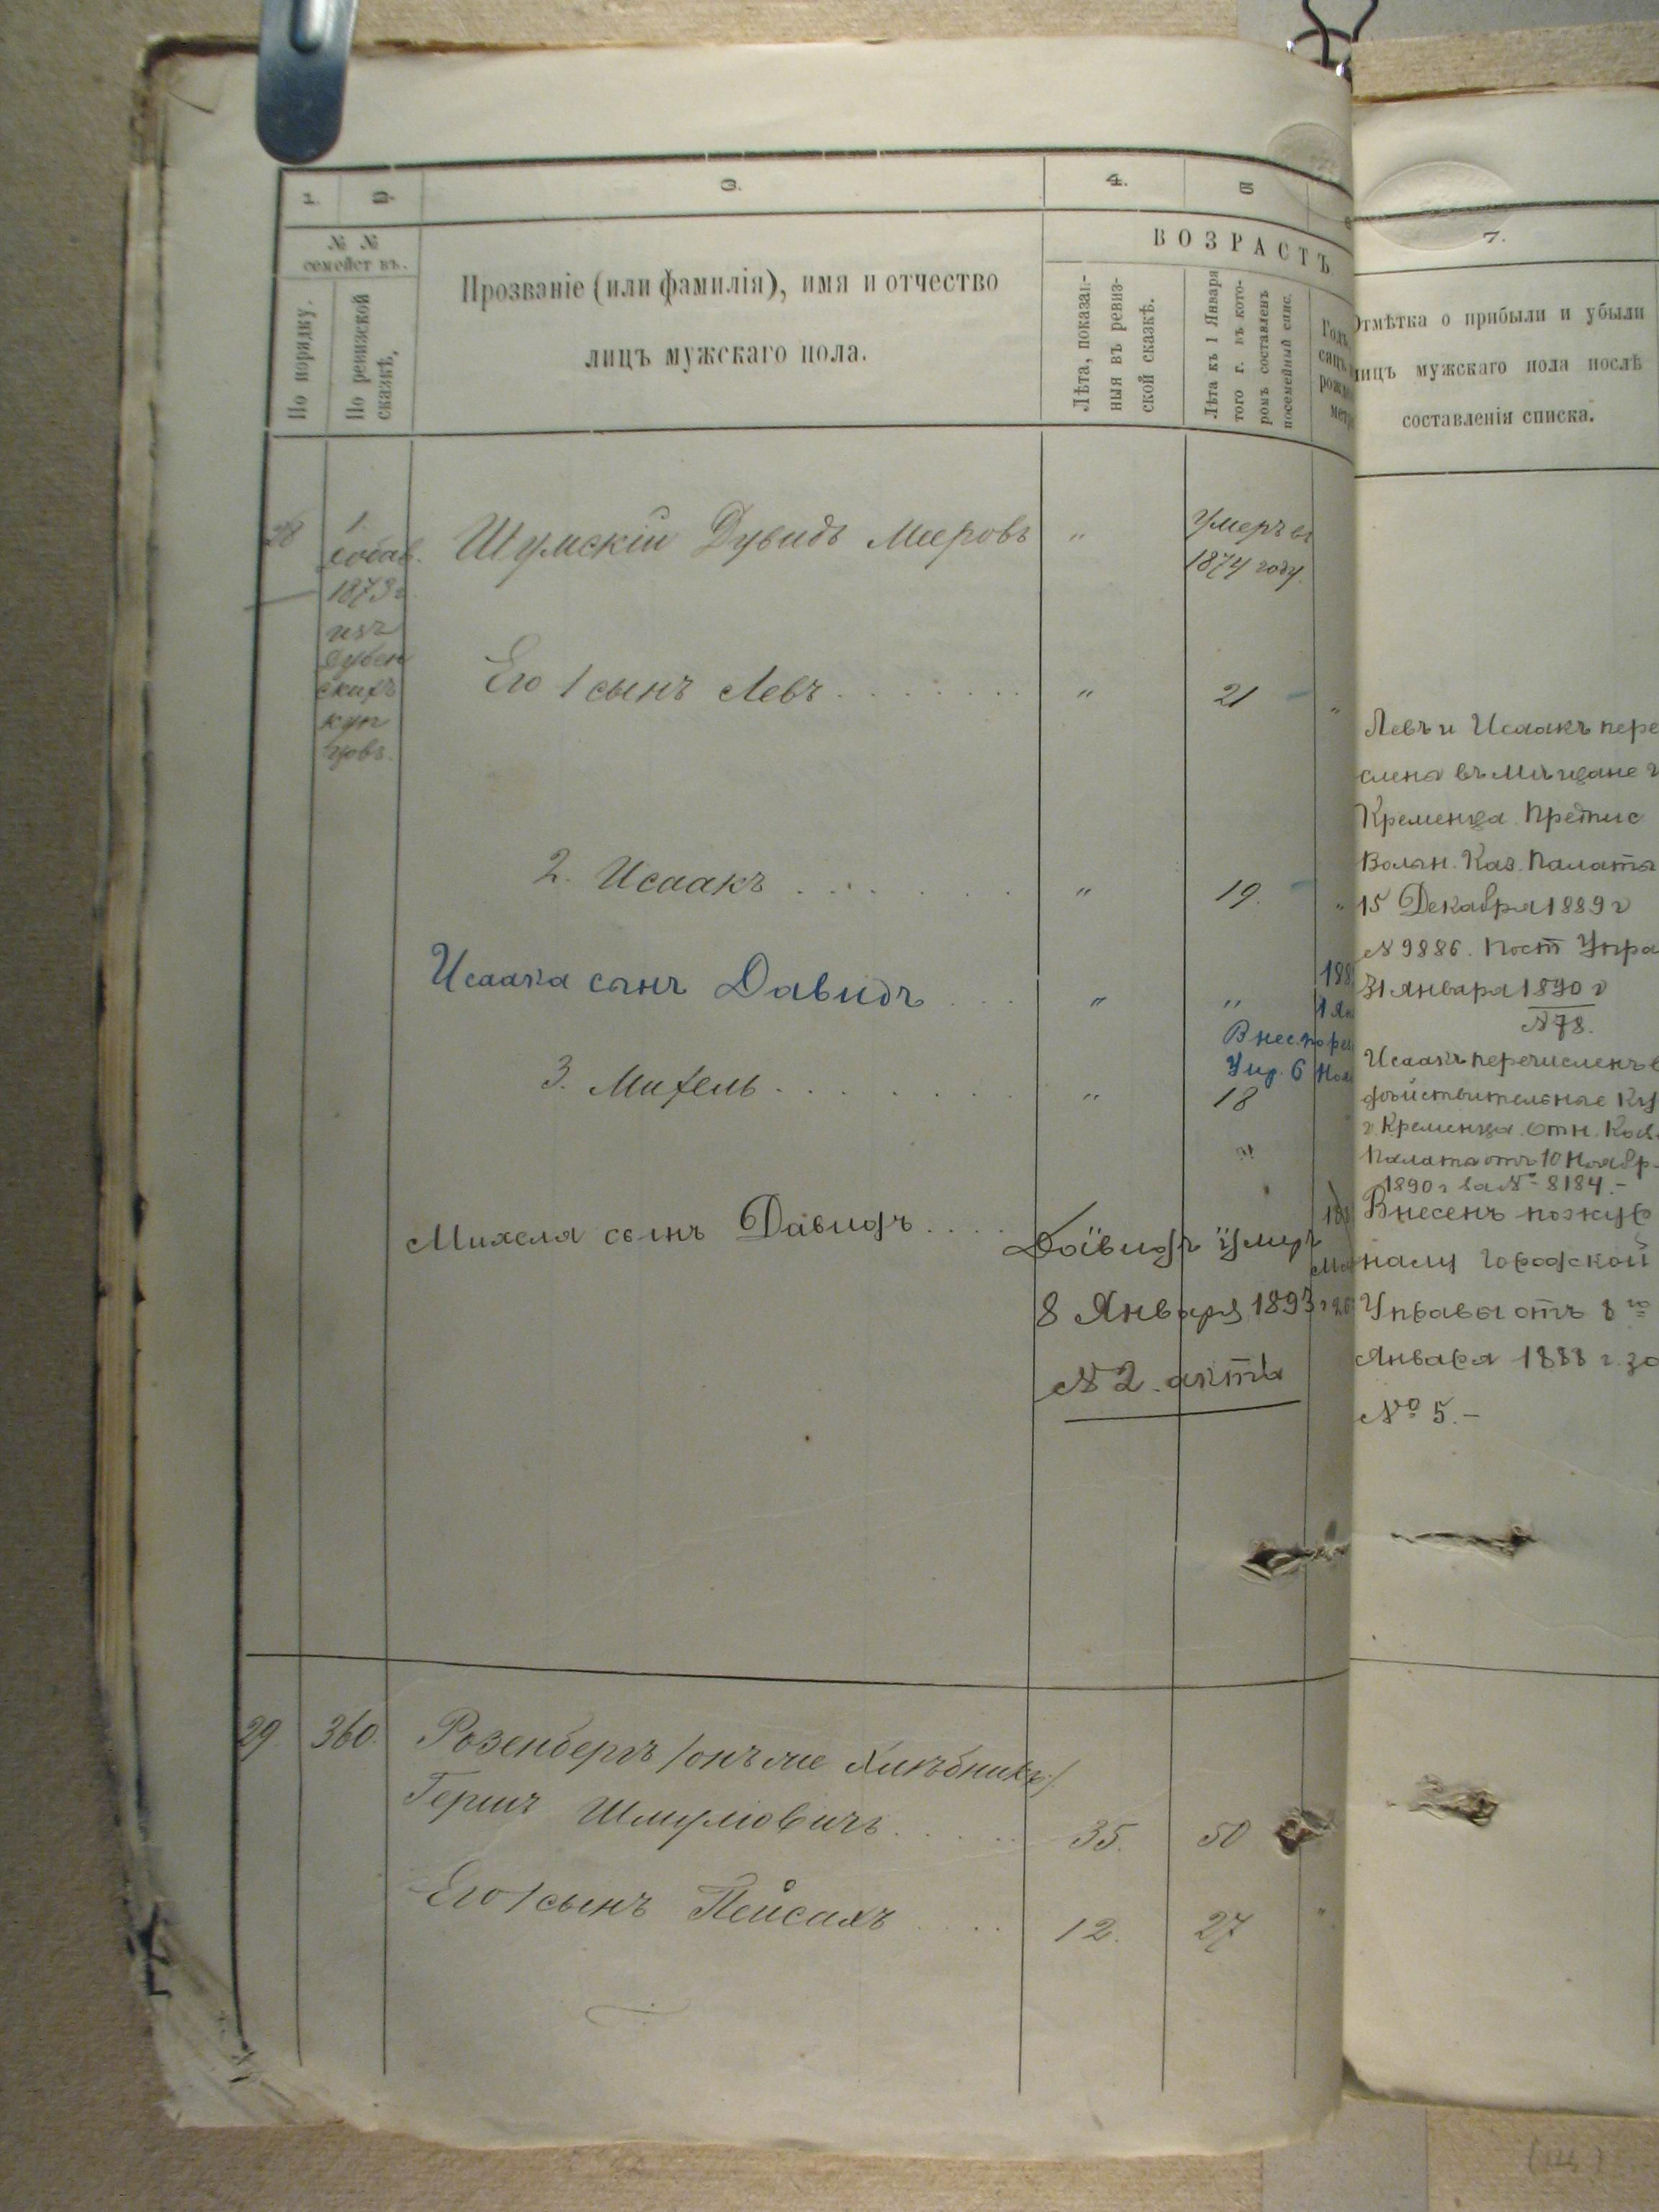 1.
2.
3.
4.
5
7.
№ №
семейст въ.
По порядку.
По ревизской
сказкѣ,
Прозваніе (или фамилія), имя и отчество
лицъ мужскаго пола.
ВОЗРАСТЪ
Лѣта, показан-
ныя въ ревиз-
ской сказкѣ.
Лѣта къ 1 Января
того г. въ кото-
ромъ составленъ
посемейный спис.
Годъ
Отмѣтка о прибыли и убыли
лицъ мужскаго пола послѣ
составленія списка.
28
1.
1873 г
изъ
Дубен
скихъ
куп
цовъ.
Шумскій Дувидъ Мееровъ "
Умеръ въ
1874 году.
Его 1 сынъ Левъ . . . . . . . . " 21 "
2. Исаакъ . . . . . . " 19. "
Исаака сынъ Давидъ . . . " " 188
1 Ян
Внес. по
Упр. 6 Ноя
3. Михель . . . . . . . . " 18
"
Михеля сынъ Давидъ . . . .
Давидъ умеръ
8 Января 1893 г
№ 2. акта
Левъ и Исаакъ пере
слены въ Мѣщане г
Кременца. Предпис
Волын. Каз. Палаты
15 Декабря 1889 г
№ 9886. Пост Упра
31 Января 1890 г
№ 78.
Исаакъ перечисленъ в
дѣйствительные Куп
г. Кременца. Отн. Каз.
Палаты отъ 10 Ноябр.
1890 г за № 8184.-
Внесенъ по жур
налу Городской
Управы отъ 8 го
Января 1888 г. за
№ 5.-
29. 360. Розенбергъ /онъ же Хлѣбникъ/
Гершъ Шмулювичъ . . . . . 35. 50
Его 1 сынъ Пейсахъ . . . . 12. 27 "